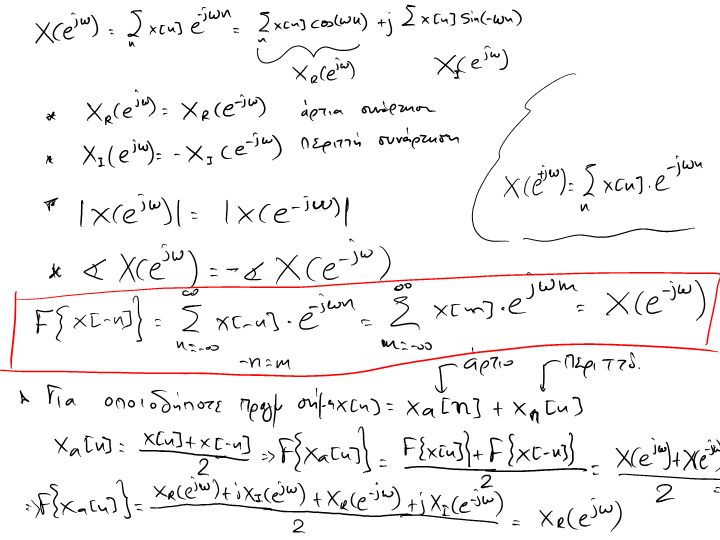 X(e^{jω}) = Σ_n x[n] e^{-jωn} = Σ_n x[n] cos(ωn) + j Σ x[n] sin(-ωn)
X_R(e^{jω}) X_I(e^{jω})
* X_R(e^{jω}) = X_R(e^{-jω}) άρτια συνάρτηση
* X_I(e^{jω}) = -X_I(e^{-jω}) περιττή συνάρτηση
X(e^{+jω}) = Σ_n x[n] · e^{-jωn}
* |X(e^{jω})| = |X(e^{-jω})|
* ∢ X(e^{jω}) = -∢ X(e^{-jω})
F{x[-n]} = Σ_{n=-∞}^{∞} x[-n] · e^{-jωn} = Σ_{m=-∞}^{∞} x[m] · e^{jωm} = X(e^{-jω})
-n=m
άρτιο περιττό.
* Για οποιοδήποτε πραγμ σήμα x[n] = x_α[n] + x_π[n]
x_α[n] = (x[n] + x[-n])/2 ⇒ F{x_α[n]} = (F{x[n]} + F{x[-n]})/2 = (X(e^{jω}) + X(e^{-jω}))/2 =
⇒ F{x_α[n]} = (X_R(e^{jω}) + jX_I(e^{jω}) + X_R(e^{-jω}) + jX_I(e^{-jω}))/2 = X_R(e^{jω})